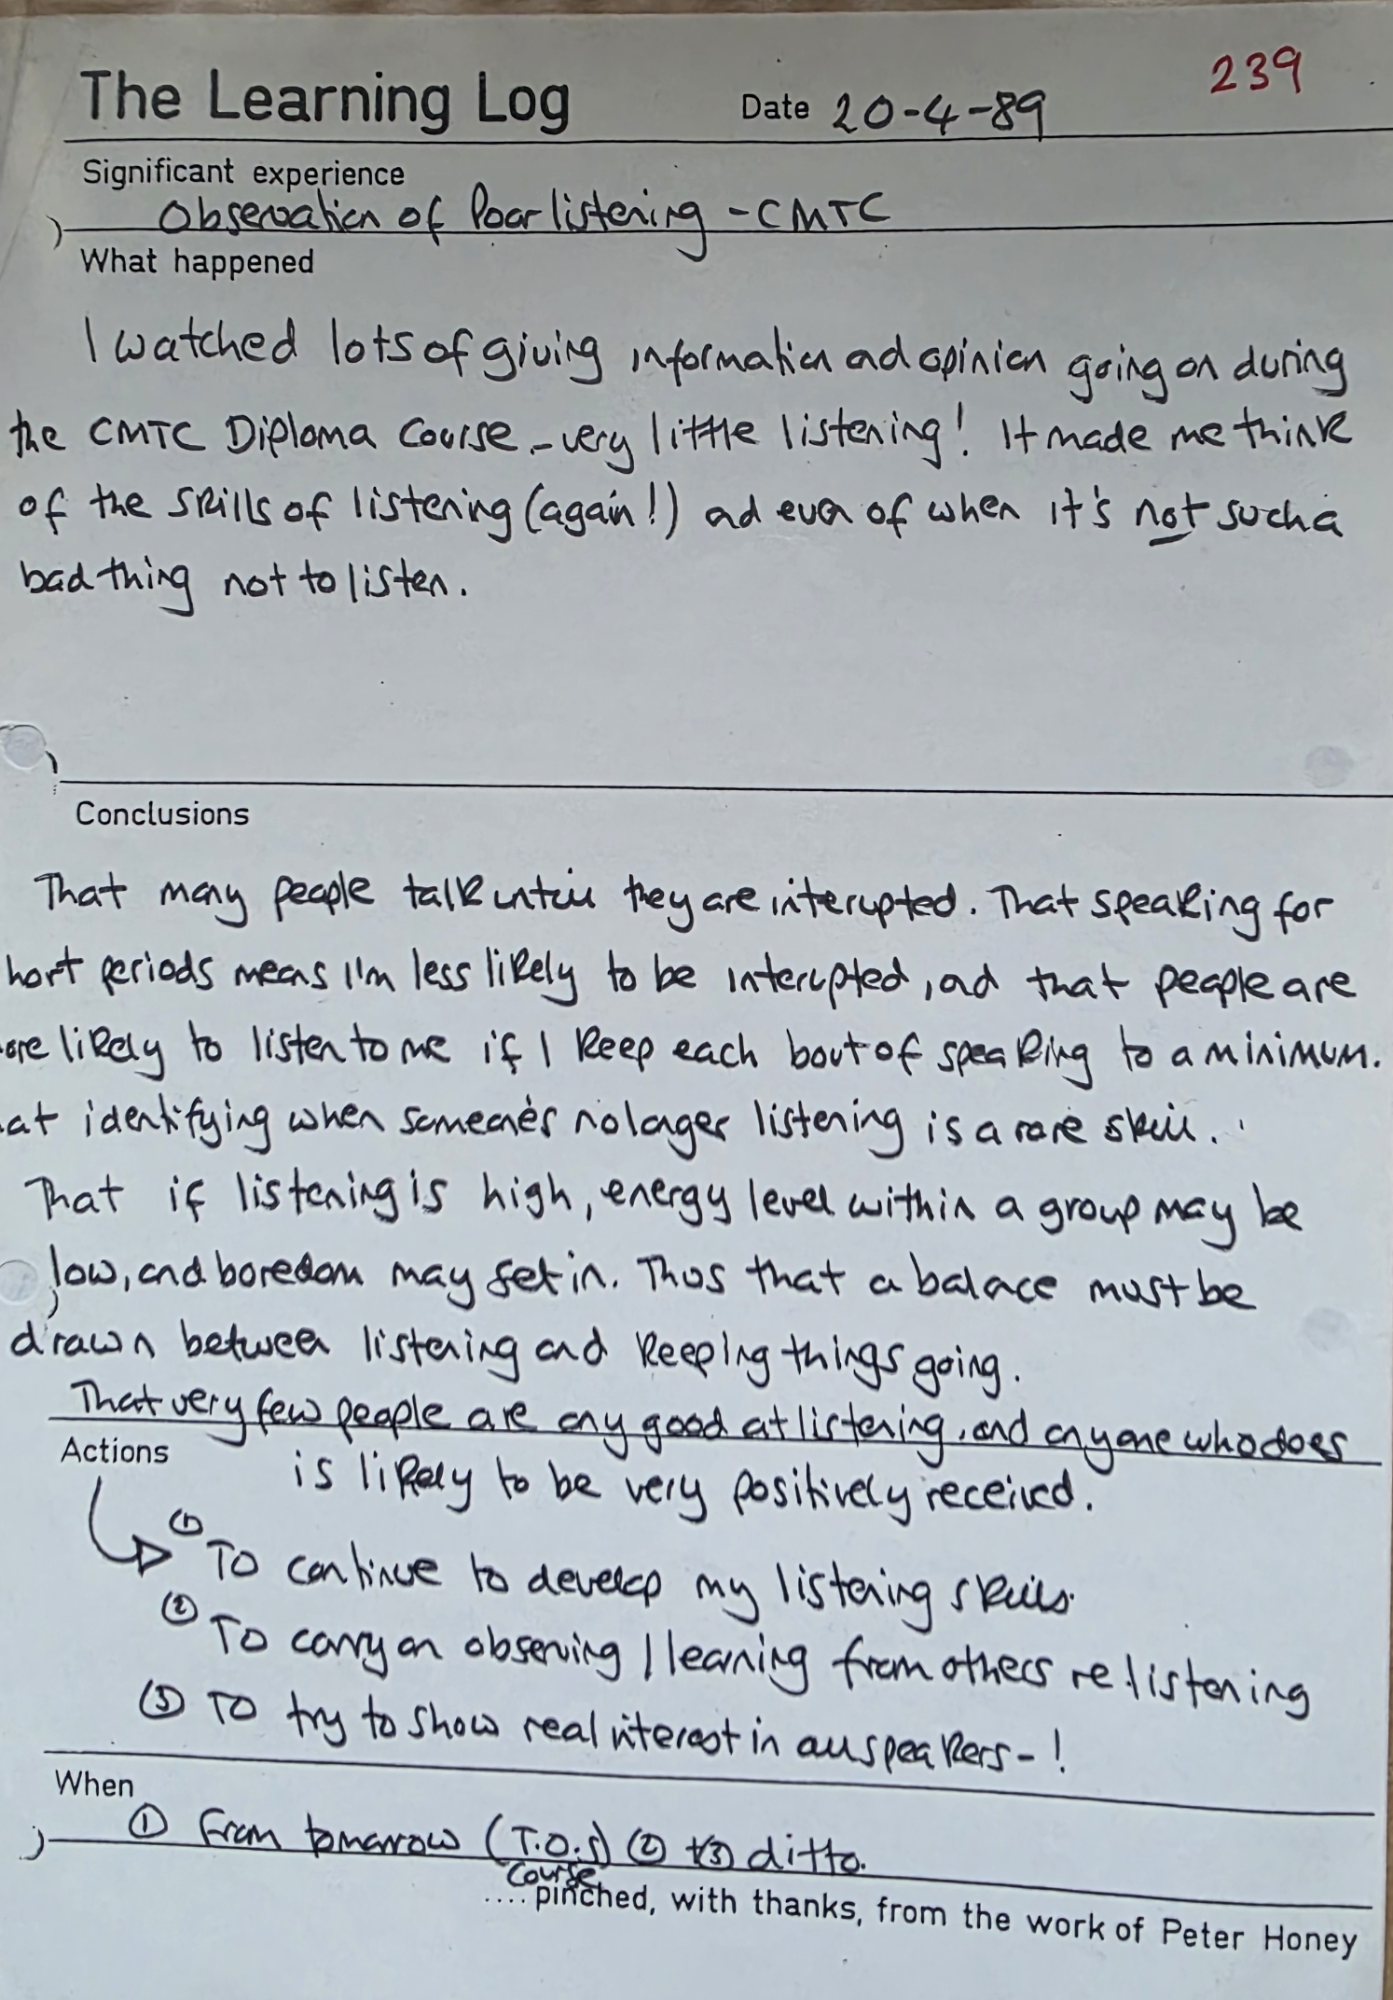 239
The Learning Log Date 20-4-89
Significant experience
Observation of Poor listening - CMTC
What happened
I watched lots of giving information ad opinion going on during
the CMTC Diploma Course - very little listening! It made me think
of the skills of listening (again!) ad even of when it's not such a
bad thing not to listen.
Conclusions
That many people talk until they are interupted. That speaking for
hort periods means I'm less likely to be interupted, ad that people are
ore likely to listen to me if I keep each bout of speaking to a minimum.
at identifying when someone's no longer listening is a rare skill.
That if listening is high, energy level within a group may be
low, and boredom may set in. Thus that a balace must be
drawn between listening and keeping things going.
That very few people are any good at listening, and anyone who does
Actions
is likely to be very positively received.
① To continue to develop my listening skills.
② To carry on observing / learning from others re listening
③ To try to show real interest in all speakers - !
When
① From tomorrow (T.O.S) ② + ③ ditto.
Course
.... pinched, with thanks, from the work of Peter Honey